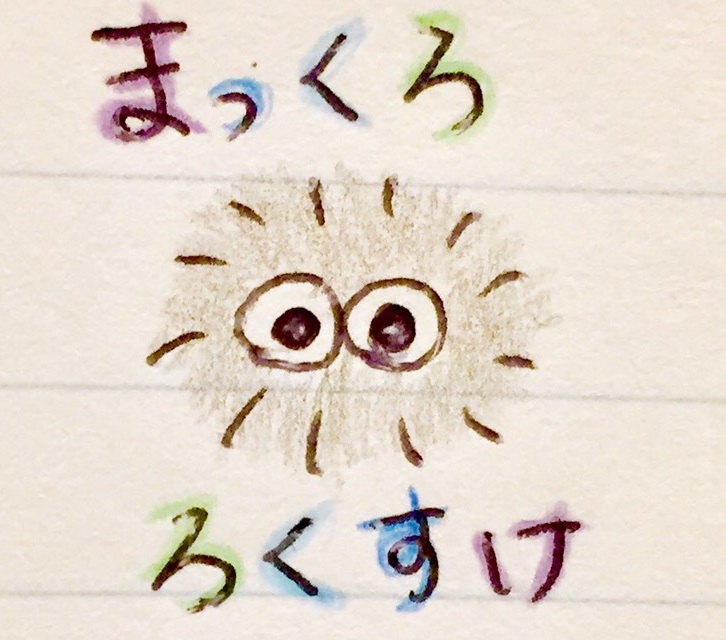 まっくろ
ろくすけ